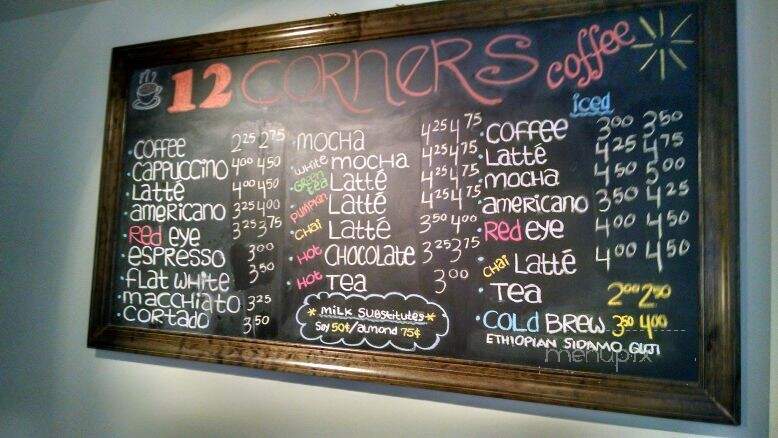 12 CORNERS coffee
• coffee 2 25 2 75
• cappuccino 4 00 4 50
• Latté 4 00 4 50
• americano 3 25 4 00
• Red eye 3 25 3 75
• espresso 3 00
• flat white 3 50
• macchiato 3 25
• cortado 3 50
• mocha 4 25 4 75
• white mocha 4 25 4 75
• Green tea Latté 4 25 4 75
• Pumpkin Latté 4 25 4 75
• Chai Latté 3 50 4 00
• Hot Chocolate 3 25 3 75
• Hot Tea 3 00
* Milk Substitutes *
Soy 50¢/almond 75¢
iced
• coffee 3 00 3 50
• Latté 4 25 4 75
• mocha 4 50 5 00
• americano 3 50 4 25
• Red eye 4 00 4 50
• Chai Latté 4 00 4 50
• Tea 2 00 2 50
• COLD BREW 3 50 4 00
ETHIOPIAN SIDAMO GUJI
menupix